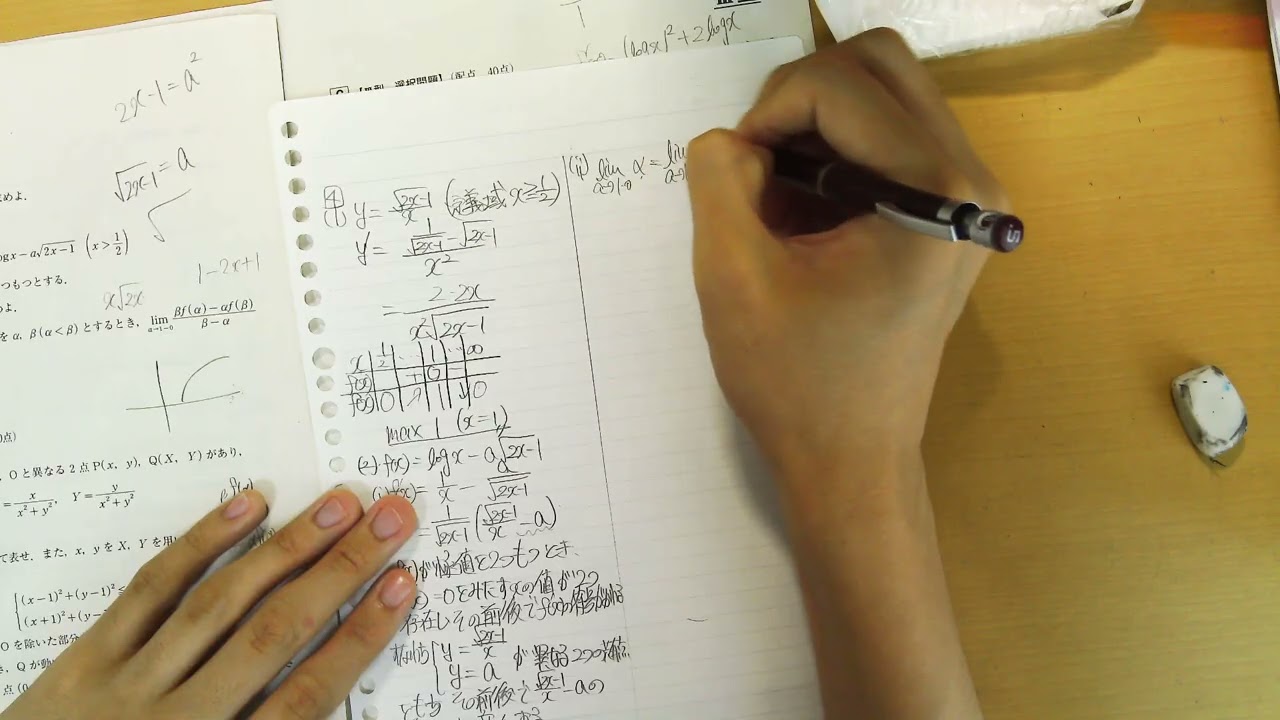 2x-1=a²
√2x-1=a
めよ.
ogx-a√2x-1 (x>1/2)
つもつとする.
1-2x+1
よ.
x√2x
を α, β(α<β) とするとき, lim a→1-0 βf(α)-αf(β)/β-α
0点)
, O と異なる 2 点 P(x, y), Q(X, Y) があり,
= x/x²+y², Y= y/x²+y²
て表せ. また, x, y を X, Y を用
(x-1)²+(y-1)²≤
(x+1)²+(y-
O を除いた部分
き, Q が動
点 (0
(logx)²+2logx
選択問題】 (配点 40点)
4
(1) y= √2x-1/x (定義域 x≥1/2)
y'= 1/√2x-1 - √2x-1 / x²
= 2-2x / x²√2x-1
x 1/2 … 1 … ∞
f'(x) + 0 -
f(x) 0 ↗ 1 ↘ 0
max 1 (x=1)
(2) f(x)=logx-a√2x-1
(i) f'(x)= 1/x - a/√2x-1
= 1/√2x-1 (√2x-1/x - a)
が極値を2つもつとき,
=0をみたすxの値が2つ
存在しその前後で
y= √2x-1/x
y=a が異なる2つの
ともちその前後で √2x-1/x - aの
(ii) lim a→1-0 α = lim a→1